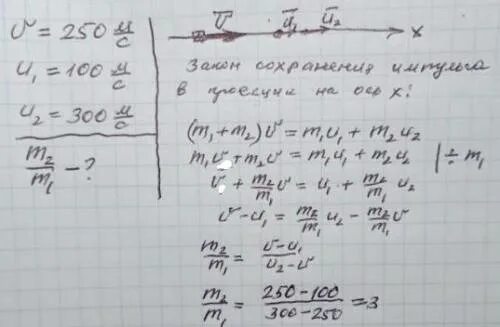 v = 250 м/с
u₁ = 100 м/с
u₂ = 300 м/с
m₂/m₁ - ?
v̅ u̅₁ u̅₂ x
Закон сохранения импульса
в проекции на ось x:
(m₁ + m₂)v = m₁u₁ + m₂u₂
m₁v + m₂v = m₁u₁ + m₂u₂ | ÷ m₁
v + m₂/m₁ v = u₁ + m₂/m₁ u₂
v - u₁ = m₂/m₁ u₂ - m₂/m₁ v
m₂/m₁ = (v - u₁)/(u₂ - v)
m₂/m₁ = (250 - 100)/(300 - 250) = 3